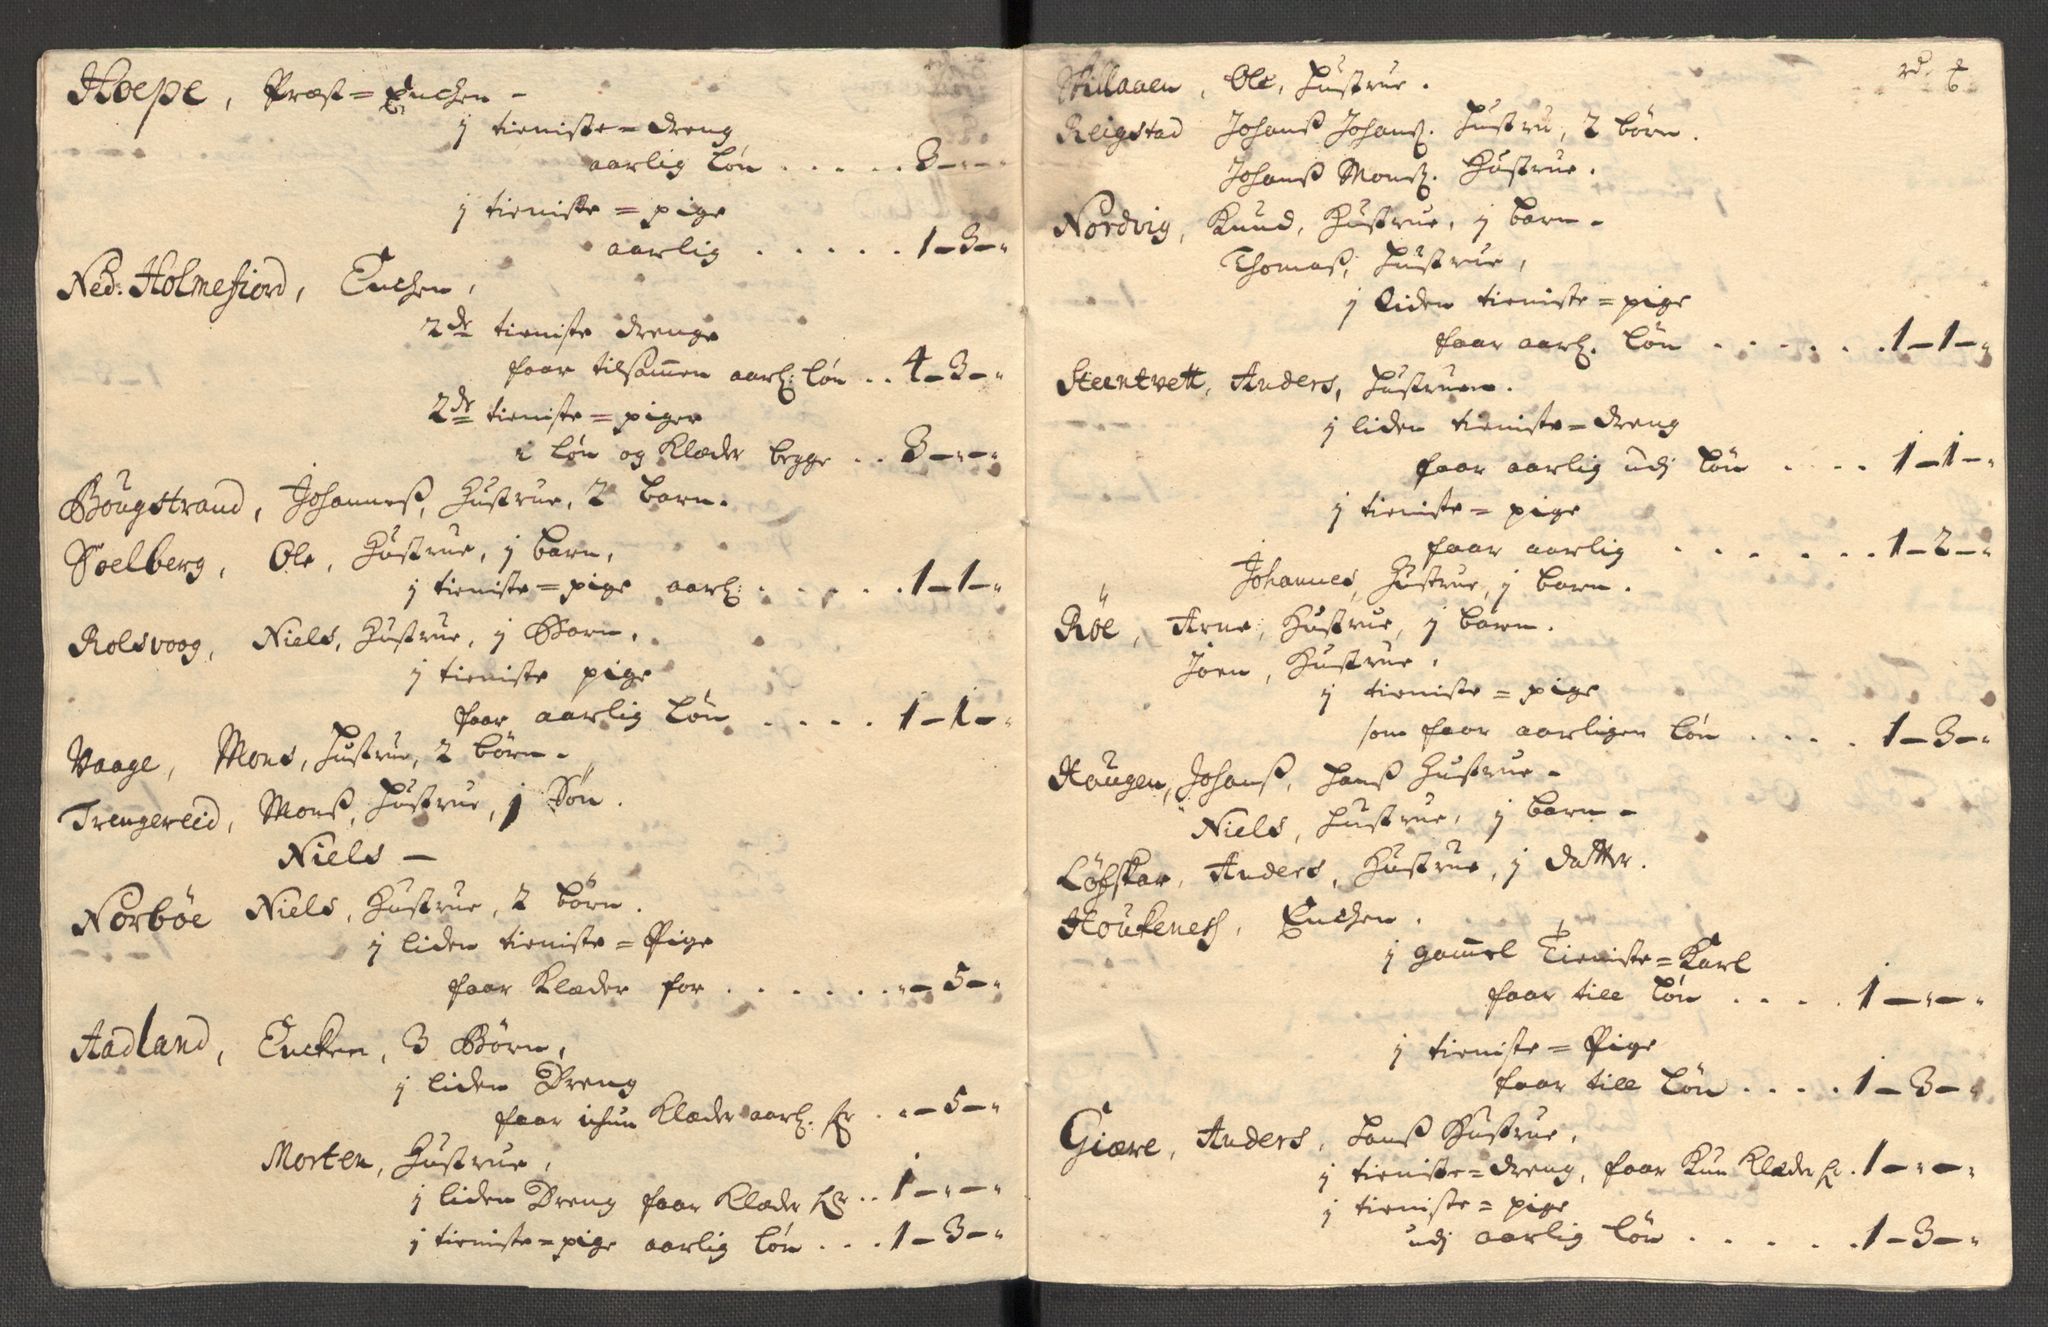 Hoepe, Præst=Enchen -
j tieniste=dreng
aarlig løn . . . . . 3-"-"
j tieniste=pige
aarlig . . . . . 1-3-"
Ned: Holmefiord, Enchen,
2de tieniste drenge
faar tilsam̄en aarl: løn . . 4-3-"
2de tieniste=piger
i løn og Klæder begge . . 3-"-"
Bougstrand, Johanneß, Hustrue, 2 barn.
Soelberg, Ole, Hustrue, j barn,
j tieniste=pige aarl: . . . . . 1-1-"
Rolsvoog, Niels, Hustrue, j Barn,
j tieniste pige
faar aarlig løn . . . . 1-1-"
Vaage, Mons, Hustrue, 2 börn.
Trengereid, Monß, Hustrue, j Sön.
Niels -
Norböe Niels, Hustrue, 2 börn.
j liden tieniste=Pige
faar Klæder for . . . . . . "-5-"
Aadland, Encken, 3 Börn,
j liden Dreng
faar ichun Klæder aarl. for . "-5-"
Morten, Hustrue,
j liden Dreng faar Klæder for . . 1-"-"
j tieniste=pige aarlig løn . . . 1-3-"
rd.
Ole, Hustrue.
Reigstad Johanß Johanß. Hustru, 2 börn.
Johanß Monß. Hustrue.
Nordvig, Knud, Hustrue, j barn -
Thomaß, Hustrue,
j liden tieniste=pige
faar aarl. løn . . . . . . 1-1-"
Steentvett, Anders, Hustruen.
j liden tieniste=dreng
faar aarlig udj løn . . . . 1-1-"
j tieniste=pige
faar aarlig . . . . . . . 1-2-"
Johannes, Hustrue, j barn.
Röe, Arne, Hustrue, j barn.
Joen, Hustrue,
j tieniste=pige
som faar aarligen løn . . . . 1-3-"
Haugen, Johanß, Hanß Hustrue -
Niels, Hustrue, j barn -
Løfskar, Anders, Hustrue, j datter.
Houkeneß, Enchen.
j gam̄el Tieniste=Karl
faar till løn . . . . 1-"-"
j tieniste=Pige
faar till løn . . . . 1-3-"
Giære, Anders, Hanß Hustrue,
j tieniste=dreng, faar Kun Klæder for . 1-"-"
j tieniste=pige
udj aarlig løn . . . . . . 1-3-"